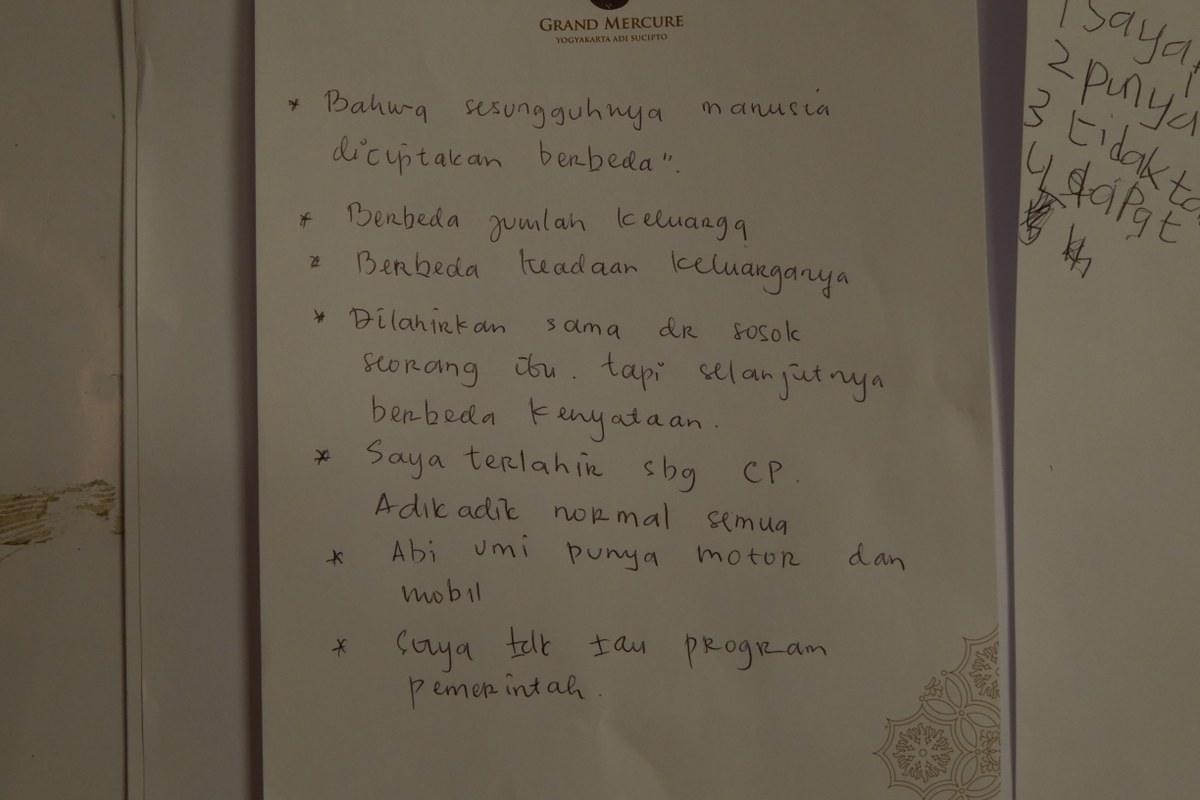 GRAND MERCURE
YOGYAKARTA ADI SUCIPTO
* Bahwa sesungguhnya manusia
diciptakan berbeda".
* Berbeda jumlah keluarga
* Berbeda keadaan keluarganya
* Dilahirkan sama dr sosok
seorang ibu. tapi selanjutnya
berbeda kenyataan.
* Saya terlahir sbg CP.
Adik adik normal semua
* Abi umi punya motor dan
mobil
* Saya tdk tau program
pemerintah.
1 saya
2 punya
3 tidak ta
4 dapat